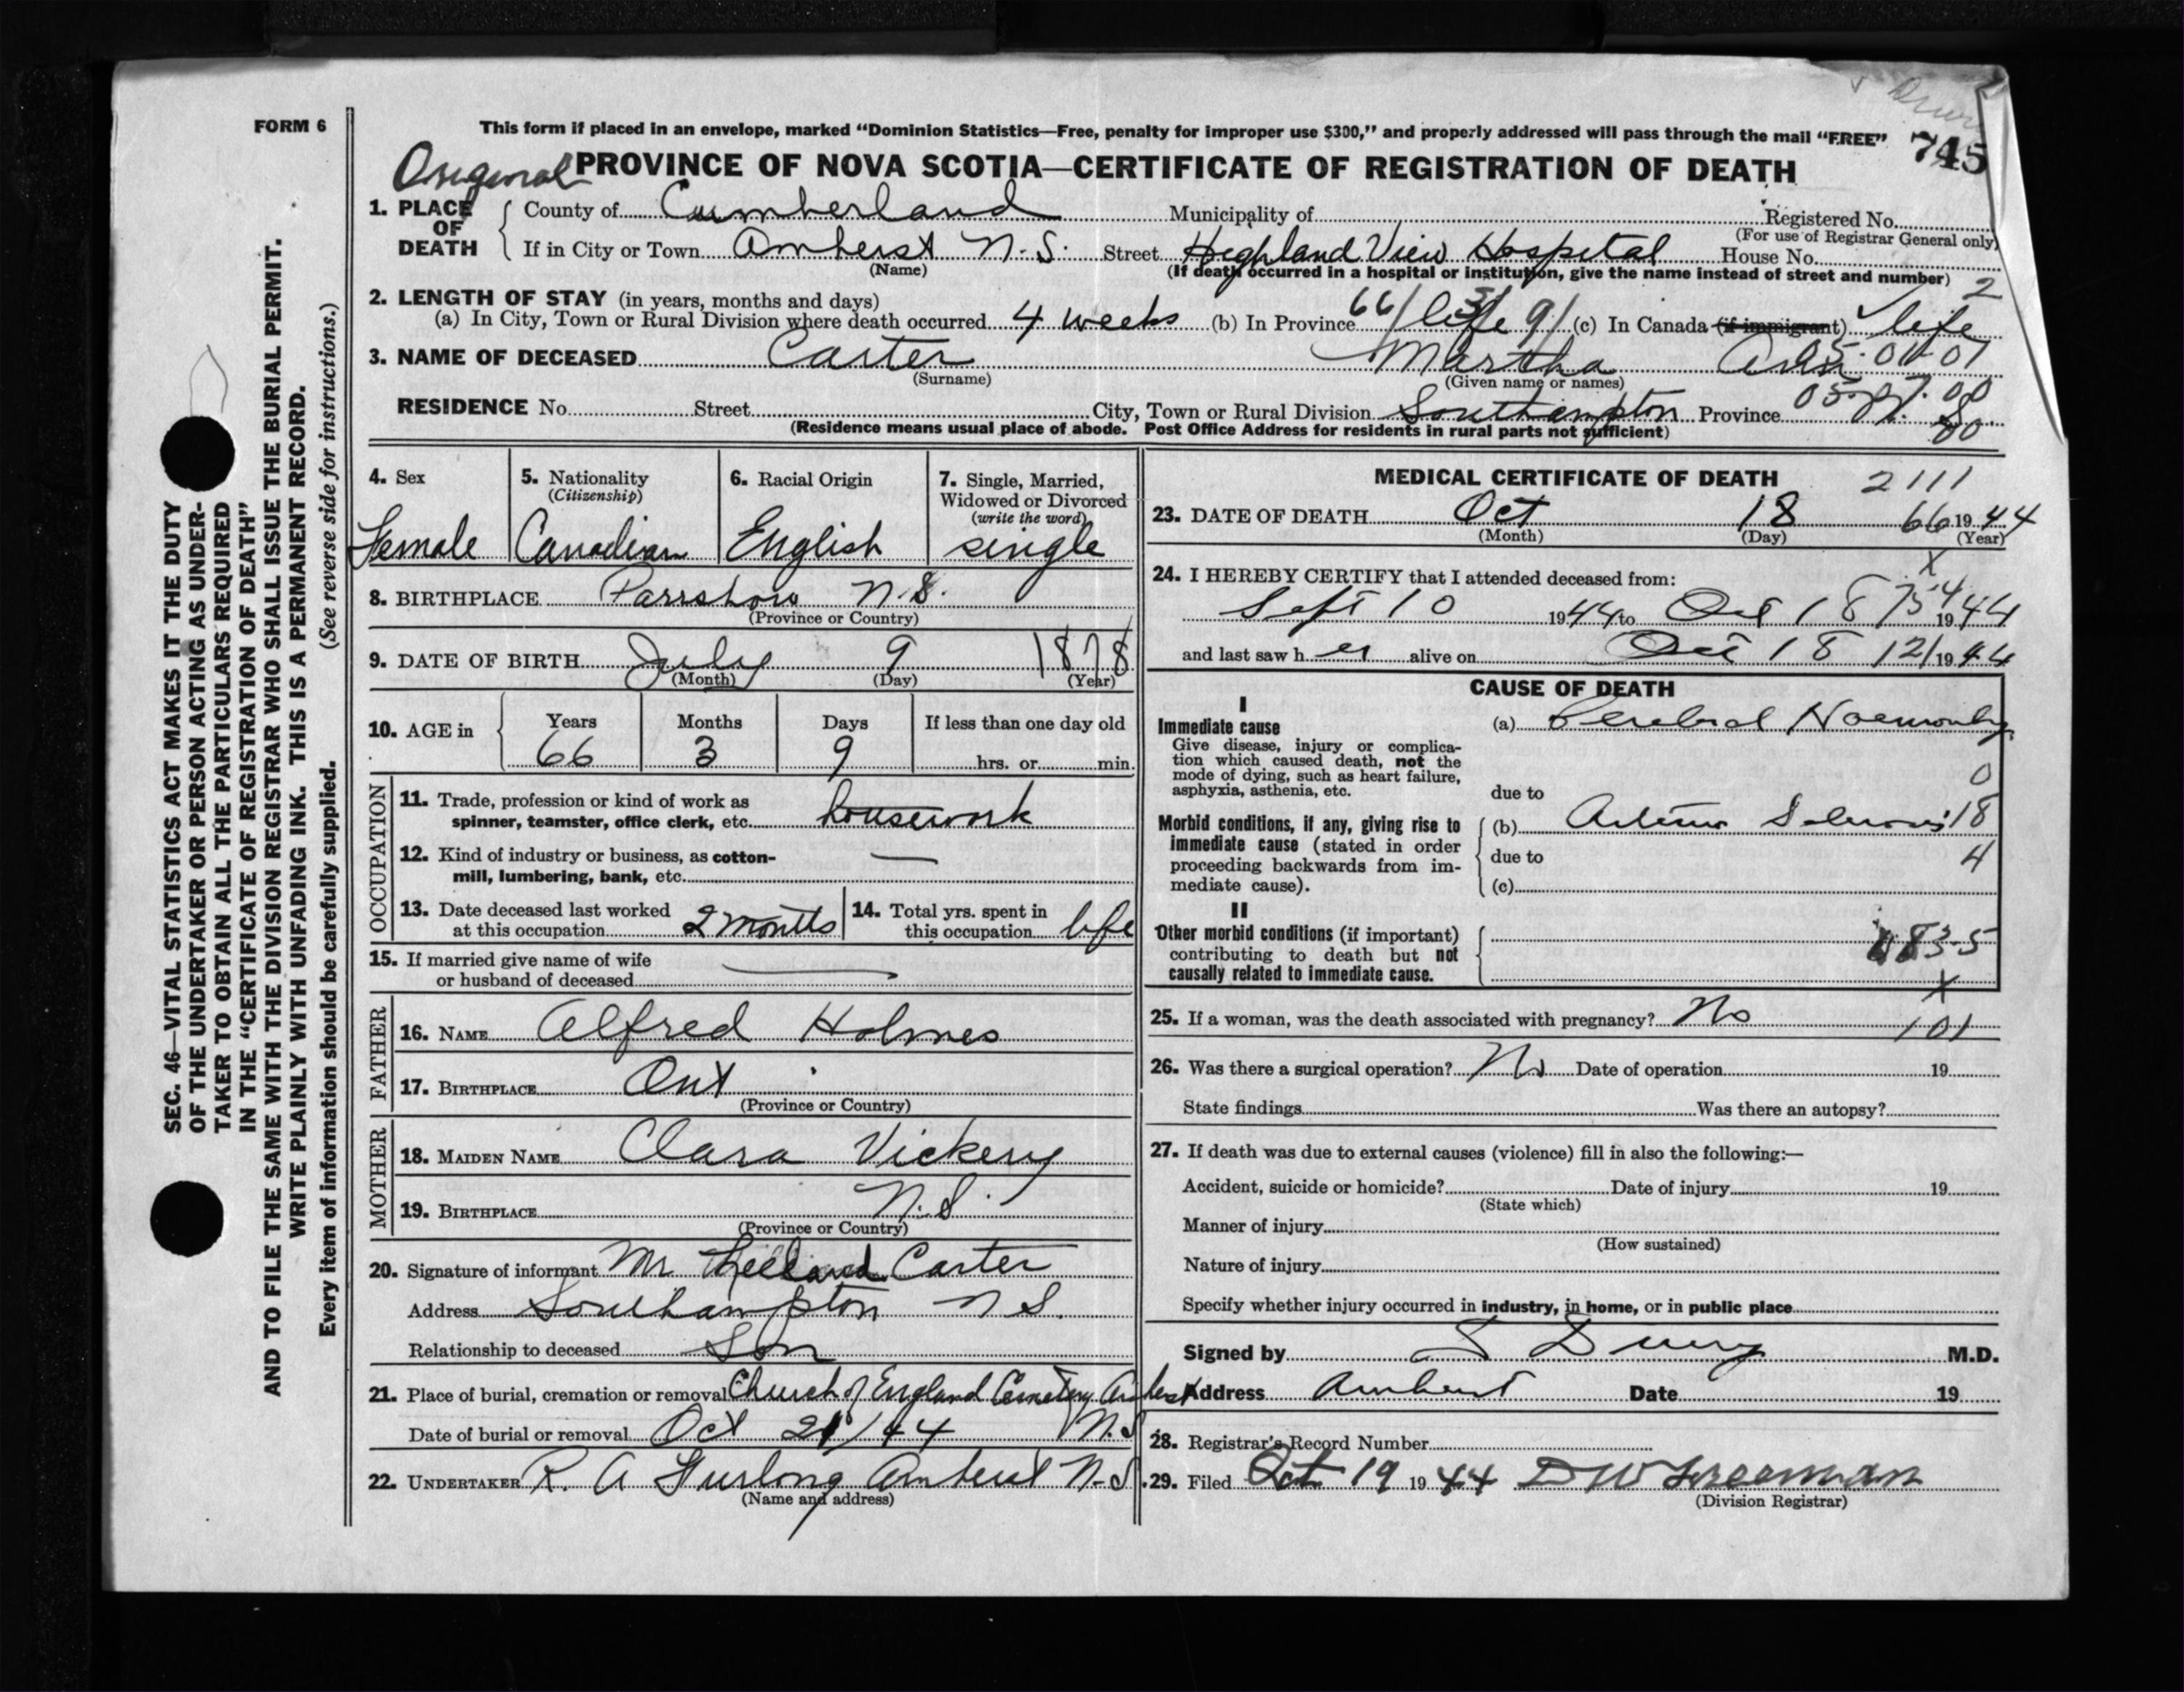 FORM 6
This form if placed in an envelope, marked "Dominion Statistics—Free, penalty for improper use $300," and properly addressed will pass through the mail "FREE"
745
Original PROVINCE OF NOVA SCOTIA—CERTIFICATE OF REGISTRATION OF DEATH
1. PLACE OF DEATH
County of Cumberland Municipality of Registered No.
(For use of Registrar General only)
If in City or Town Amherst N.S. Street Highland View Hospital House No.
(Name) (If death occurred in a hospital or institution, give the name instead of street and number) 2
2. LENGTH OF STAY (in years, months and days)
(a) In City, Town or Rural Division where death occurred 4 weeks (b) In Province 66/ life 3/ 9/ (c) In Canada (if immigrant) life
3. NAME OF DECEASED Carter Martha Ann 05.01.01
(Surname) (Given name or names)
RESIDENCE No. Street City, Town or Rural Division Southampton Province
(Residence means usual place of abode. Post Office Address for residents in rural parts not sufficient) 80
4. Sex 5. Nationality 6. Racial Origin 7. Single, Married,
(Citizenship) Widowed or Divorced
(write the word)
Female Canadian English single
8. BIRTHPLACE Parrsboro N.S.
(Province or Country)
9. DATE OF BIRTH July 9 1878
(Month) (Day) (Year)
10. AGE in Years Months Days If less than one day old
66 3 9 hrs. or min.
OCCUPATION
11. Trade, profession or kind of work as
spinner, teamster, office clerk, etc. housework
12. Kind of industry or business, as cotton-
mill, lumbering, bank, etc. —
13. Date deceased last worked
at this occupation 2 months
14. Total yrs. spent in
this occupation life
15. If married give name of wife
or husband of deceased
FATHER
16. NAME Alfred Holmes
17. BIRTHPLACE Ont
(Province or Country)
MOTHER
18. MAIDEN NAME Clara Vickery
19. BIRTHPLACE N.S.
(Province or Country)
20. Signature of informant Mr Carter
Address Southampton N S.
Relationship to deceased Son
21. Place of burial, cremation or removal Church of England Cemetery Amherst
Date of burial or removal Oct 21/44 N.S.
22. UNDERTAKER R. A Furlong Amherst N-S.
(Name and address)
MEDICAL CERTIFICATE OF DEATH 2111
23. DATE OF DEATH Oct 18 66 1944
(Month) (Day) (Year)
X
24. I HEREBY CERTIFY that I attended deceased from:
Sept 10 1944 to Oct 18 1944
and last saw her alive on Oct 18 12/ 1944
CAUSE OF DEATH
I
Immediate cause (a) Cerebral
Give disease, injury or complica-
tion which caused death, not the
mode of dying, such as heart failure,
asphyxia, asthenia, etc. 0
due to
Morbid conditions, if any, giving rise to
immediate cause (stated in order
proceeding backwards from im-
mediate cause).
(b) 18
due to 4
(c)
II
Other morbid conditions (if important)
contributing to death but not
causally related to immediate cause.
X
25. If a woman, was the death associated with pregnancy? No 101
26. Was there a surgical operation? No Date of operation 19
State findings Was there an autopsy?
27. If death was due to external causes (violence) fill in also the following:—
Accident, suicide or homicide? Date of injury 19
(State which)
Manner of injury
(How sustained)
Nature of injury
Specify whether injury occurred in industry, in home, or in public place
Signed by M.D.
Address Amherst Date 19
28. Registrar's Record Number
29. Filed Oct 19 1944 D W Freeman
(Division Registrar)
SEC. 46—VITAL STATISTICS ACT MAKES IT THE DUTY
OF THE UNDERTAKER OR PERSON ACTING AS UNDER-
TAKER TO OBTAIN ALL THE PARTICULARS REQUIRED
IN THE "CERTIFICATE OF REGISTRATION OF DEATH"
AND TO FILE THE SAME WITH THE DIVISION REGISTRAR WHO SHALL ISSUE THE BURIAL PERMIT.
WRITE PLAINLY WITH UNFADING INK. THIS IS A PERMANENT RECORD.
Every item of information should be carefully supplied. (See reverse side for instructions.)